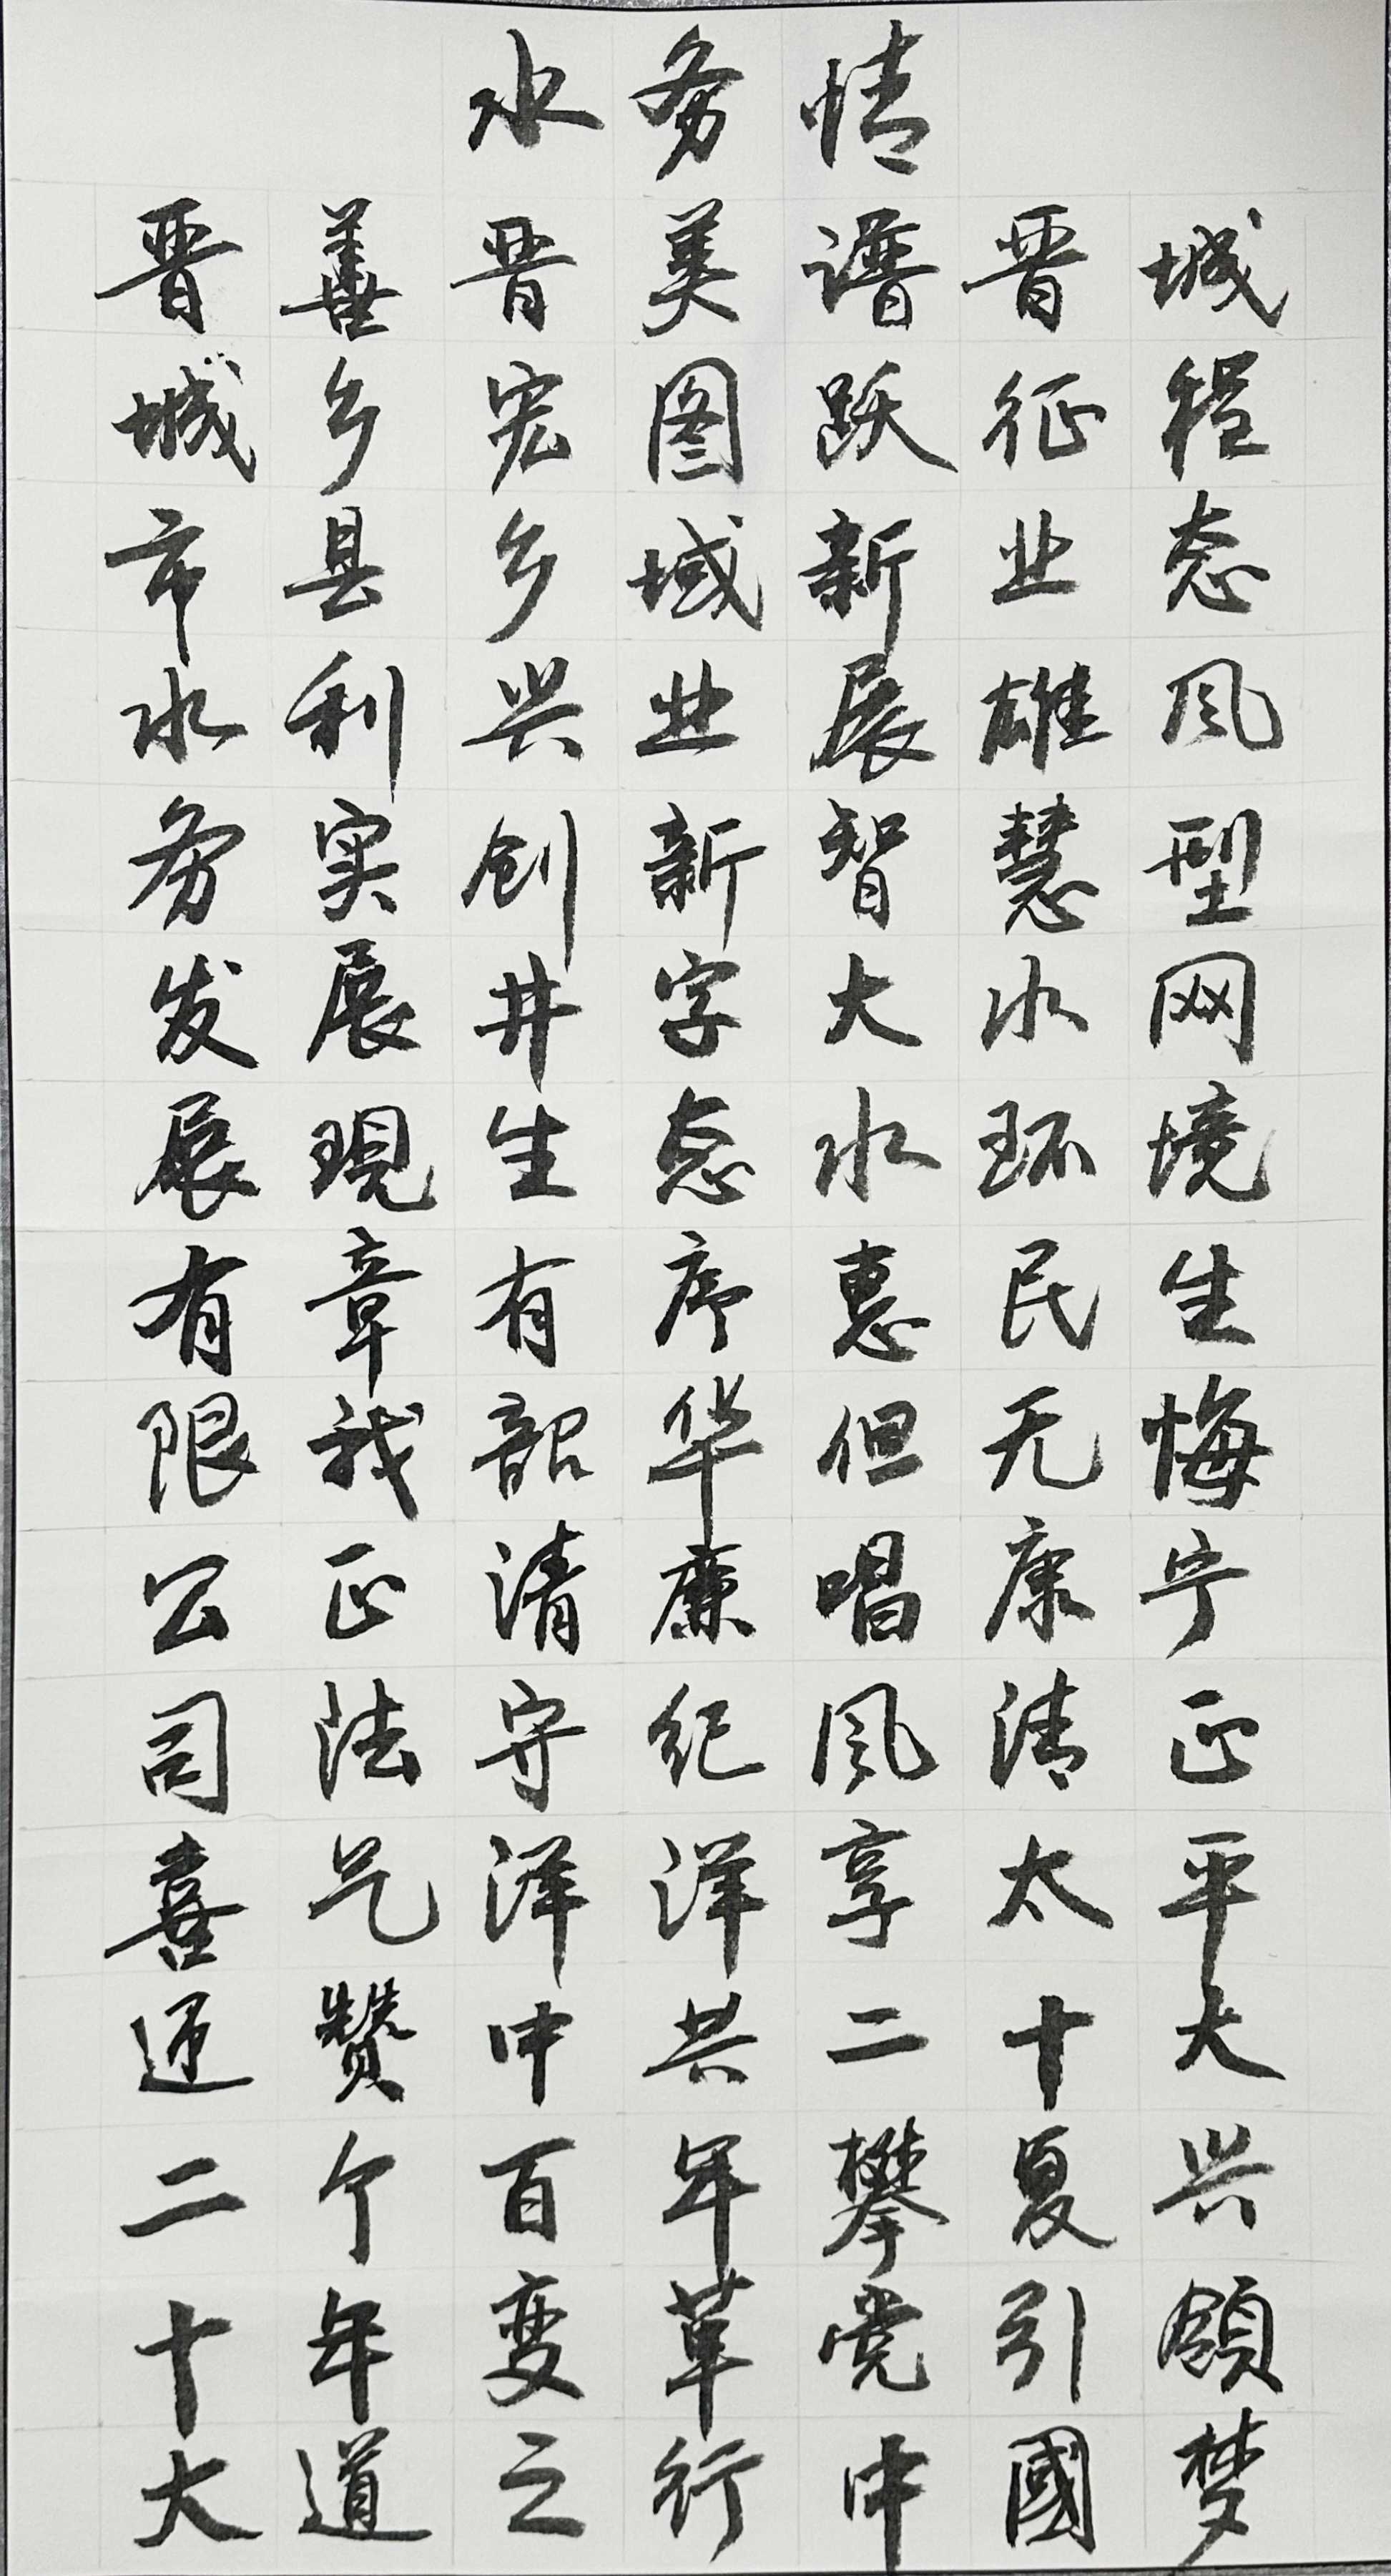 水务情
晋善晋美谱晋城
城乡宏图跃征程
市县乡域新业态
水利兴业展雄风
务实创新智慧型
发展井字大水网
展現生态水环境
有章有序惠民生
限我韶华但无悔
公正清廉唱康宁
司法守纪风清正
喜气洋洋享太平
迎赞中共二十大
二个百年攀夏兴
十年变革党引领
大道之行中國梦